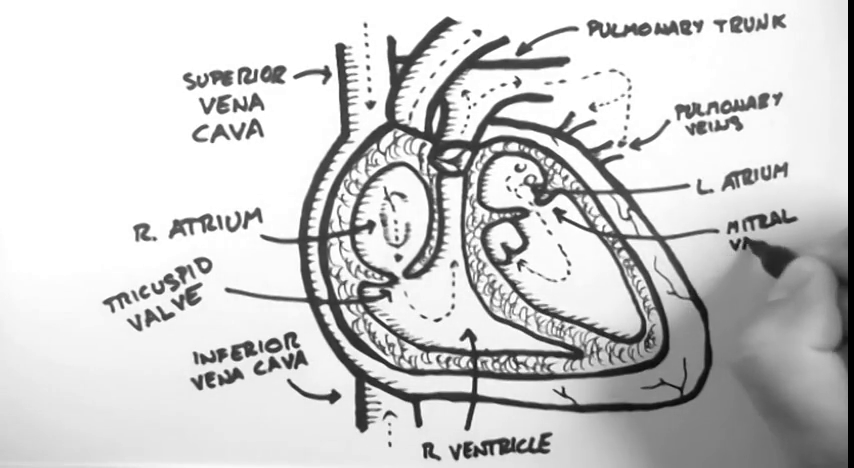 PULMONARY TRUNK
SUPERIOR
VENA
CAVA
PULMONARY
VEINS
L. ATRIUM
R. ATRIUM
MITRAL
VA
TRICUSPID
VALVE
INFERIOR
VENA CAVA
R VENTRICLE